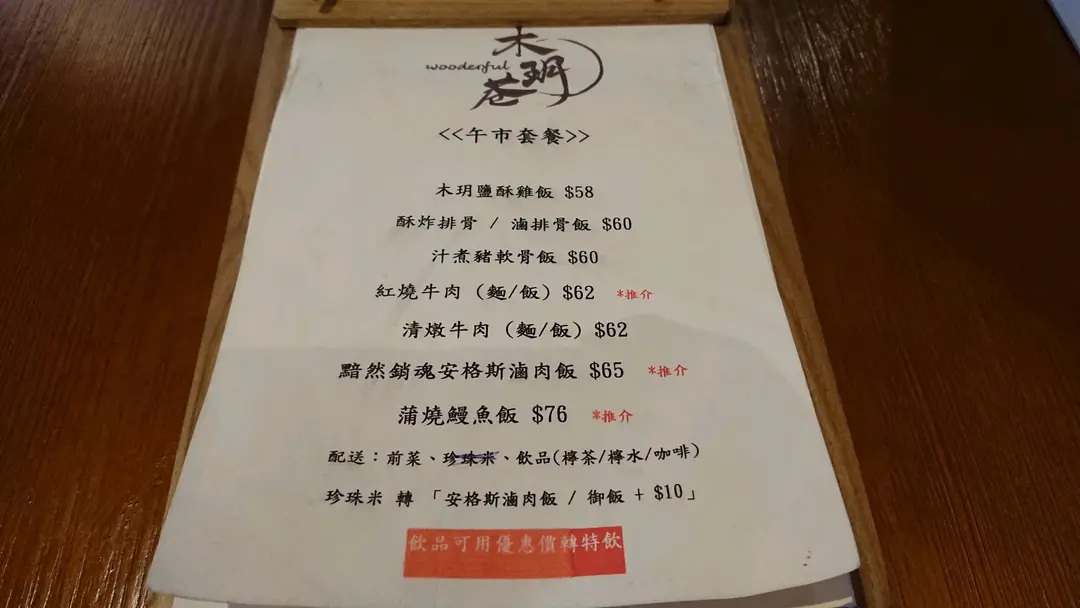 木
wooderful
玥
巷
<<午市套餐>>
木玥鹽酥雞飯 $58
酥炸排骨 / 滷排骨飯 $60
汁煮豬軟骨飯 $60
紅燒牛肉 (麵/飯) $62 *推介
清燉牛肉 (麵/飯) $62
黯然銷魂安格斯滷肉飯 $65 *推介
蒲燒鰻魚飯 $76 *推介
配送：前菜、珍珠米、飲品(檸茶/檸水/咖啡)
珍珠米 轉 「安格斯滷肉飯 / 御飯 + $10」
飲品可用優惠價轉特飲